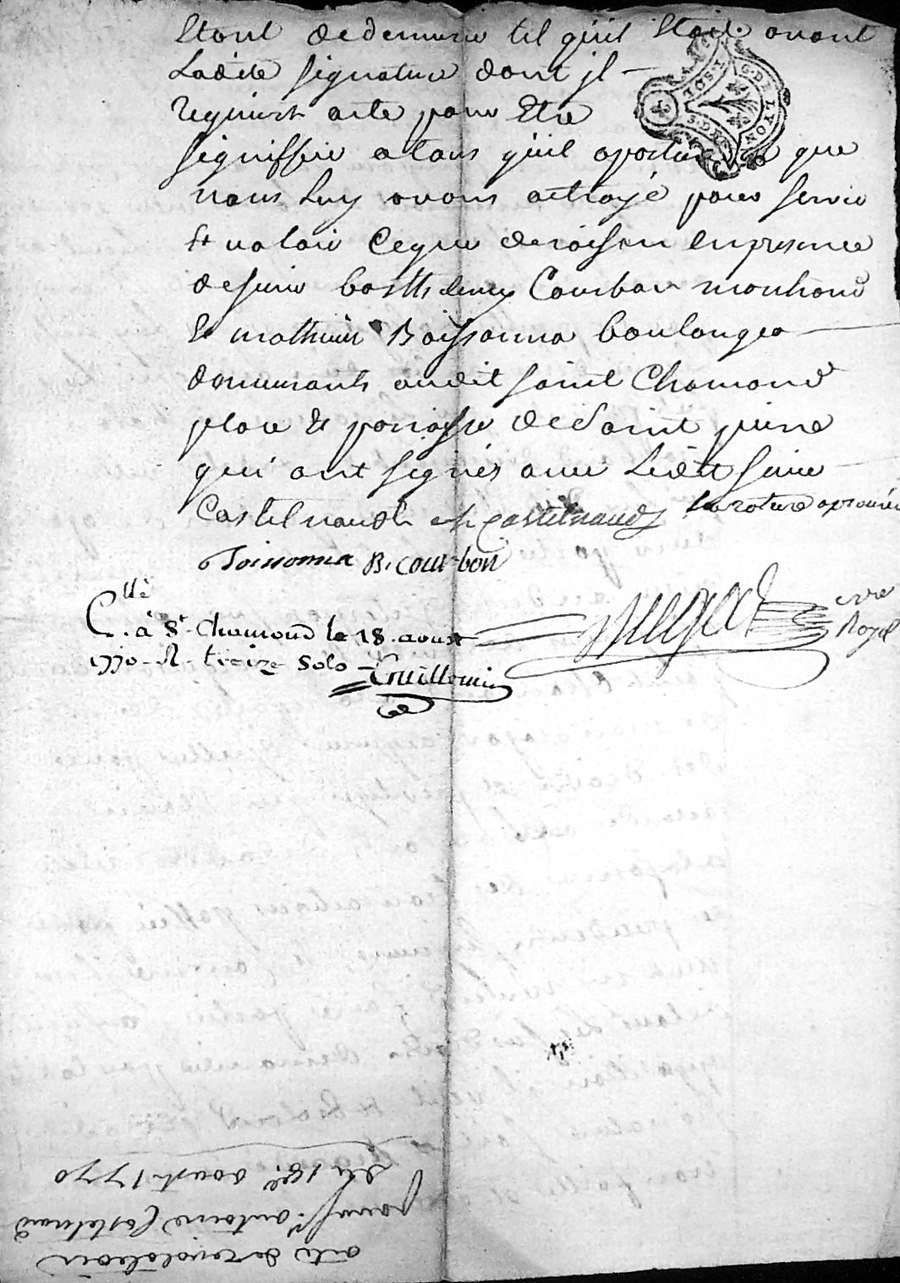 Etant de demeure tel qu'il Etoit avant
Ladite signature dont il
requiert acte pour Etre
signiffiée a tous qu'il apartiendra que
nous Luy avons octroyé pour servir
Et valoir Ceque deraison En presence
de sieurs barthelemy Courbon marchand
Et mathieu Boissonna boulanger
demeurants audit saint Chamond
place Et paroisse de Saint pierre
qui ont signés avec Ledit sieur
Castelnaud castelnaud La rature aprouvée
Boissonna B. courbon
C.llé à St. Chamond le 18 aoust
1770 R treize sols Guillemin
nre Royal
G. DE LYON
acte de revocation
pour sr. antoine Castelnaud
du 18e. aoust 1770